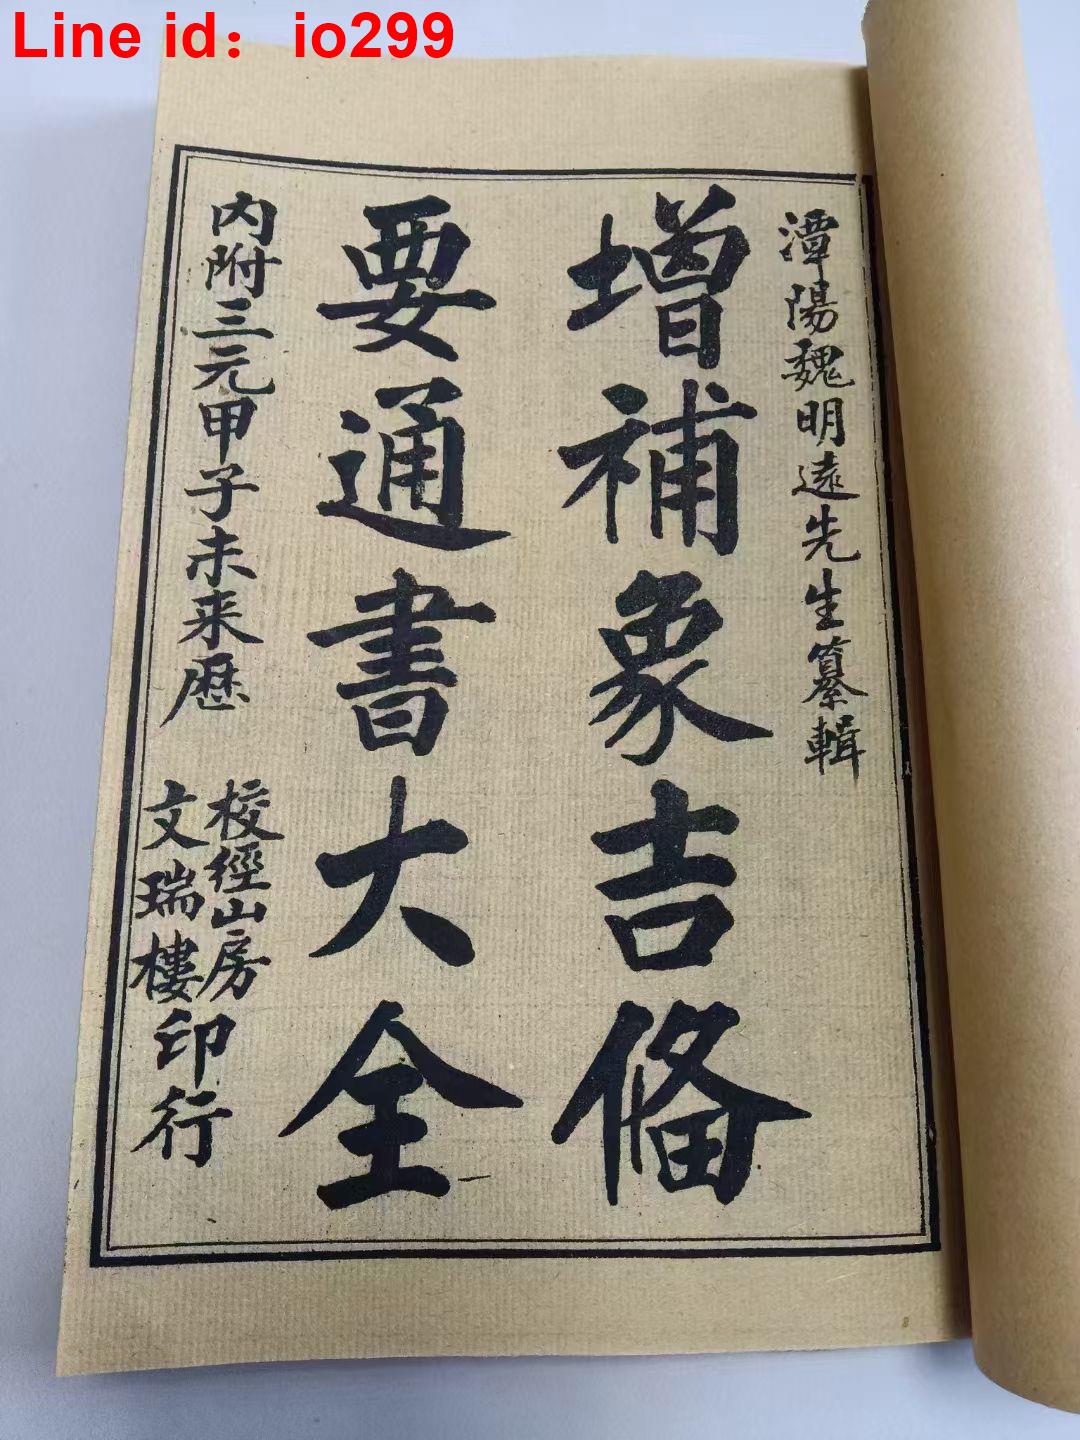 Line id： io299
潭陽魏明遠先生纂輯
增補象吉備
要通書大全
內附三元甲子未来歷
校經山房
文瑞樓
印行